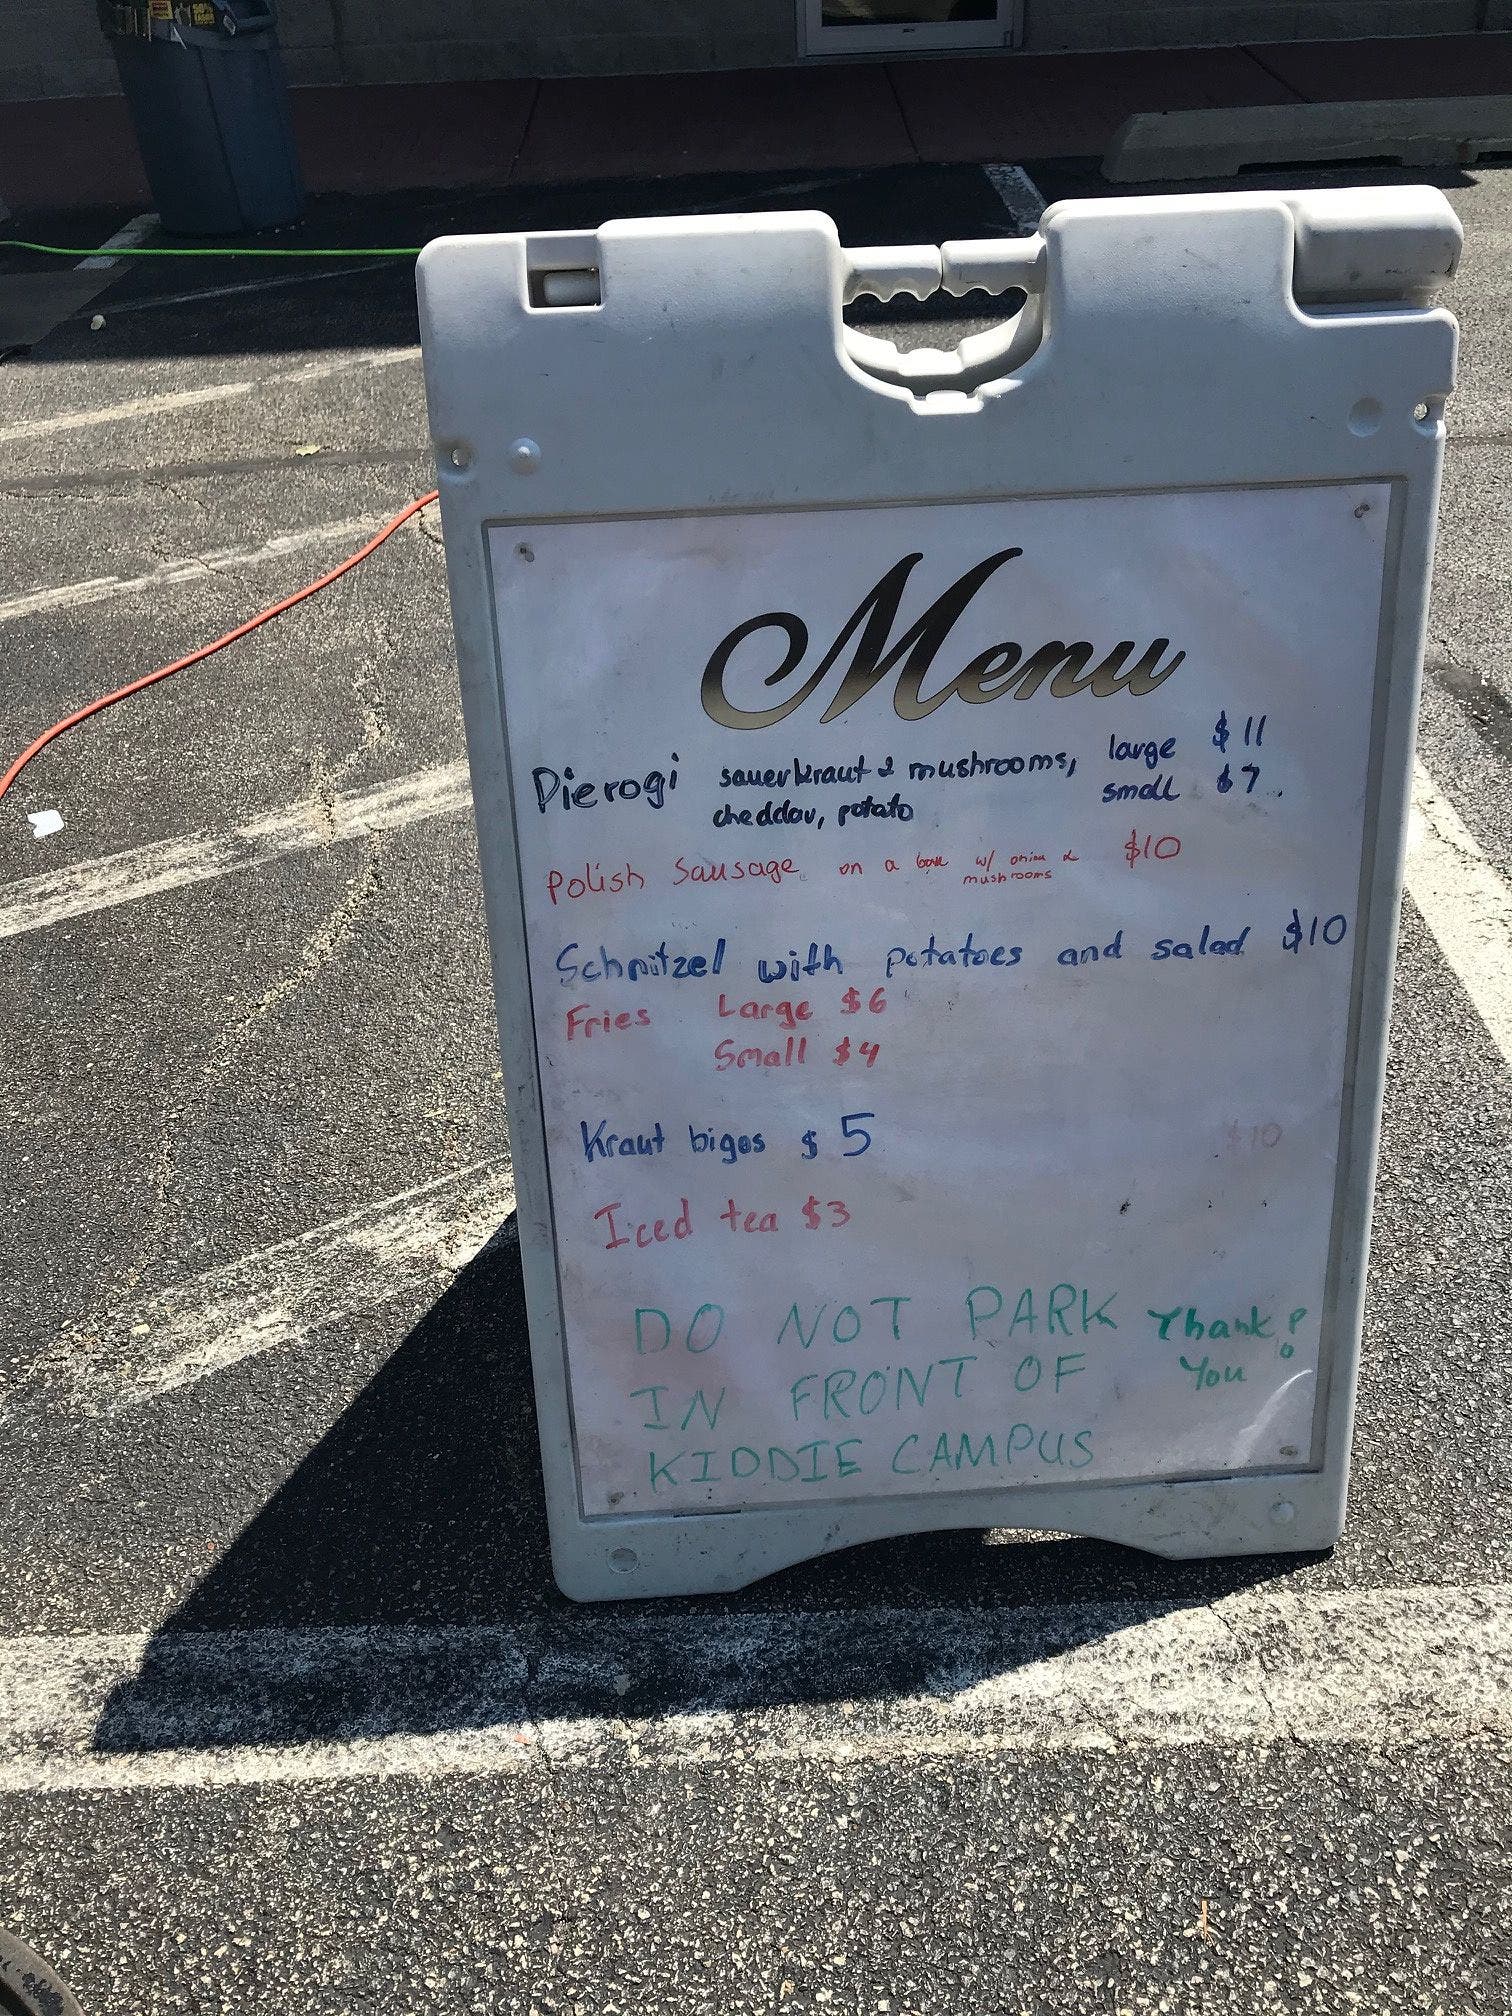 Menu
Pierogi sauerkraut & mushrooms, large $11
cheddar, potato small $7
Polish Sausage on a bun w/ onion & $10
mushrooms
Schnitzel with potatoes and salad $10
Fries Large $6
Small $4
Kraut bigos $5
$10
Iced tea $3
DO NOT PARK Thank
IN FRONT OF You
KIDDIE CAMPUS